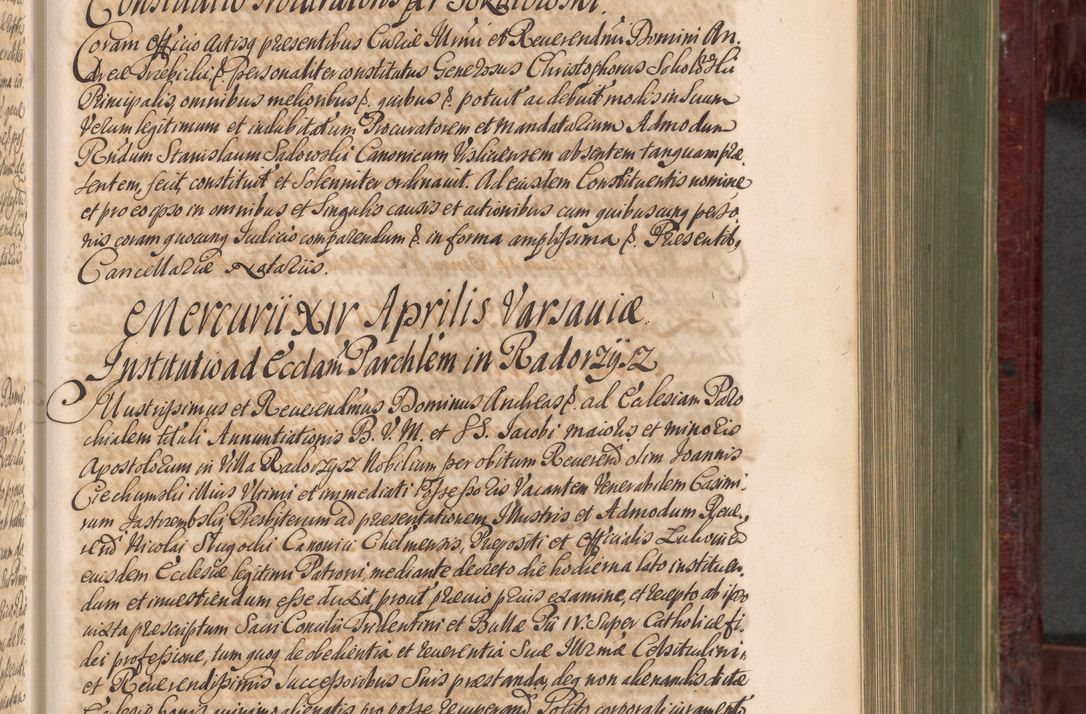 Constitutio Procuratoris pr Sokołowski.
Coram officio Actisq presentibus Curiæ Illrmi et Reuerendmi Domini An,
dreæ Trzebicki &. personaliter constitutus Generosus Christophorus Sokołoski
Principalis, omnibus melioribus &. quibus &. potuit ac debuit modis in Suum
Verum legitimum et indubitatum Procuratorem et Mandatarium Admodum
Rndum Stanislaum Sadowski Canonicum Visliciensem absentem tanquam præ,
sentem, fecit, constituit et Solenniter ordinauit. Ad eiusdem Constituentis nomine,
et pro eo ipso in omnibus et Singulis causis et actionibus cum quibuscunq perso,
nis coram quocunq Iudicio comparendum &. in forma amplissima &. Presentib,
Cancellariæ Notariis.
Mercurii XIV Aprilis Varsauiæ.
Institutio ad Ecclam Parchlem in Radorzysz
Illustrissimus et Reuerendmus Dominus Andreas &. ad Ecclesiam Paro
chialem tituli Annuntiationis B. V. M. et SS. Iacobi maioris et minoris
Apostolorum in Villa Radorzysz Nobilium per obitum Reuerend olim Ioannis
Ciechumski illius Vltimi et immediati Possessoris Vacantem Venerabilem Casimi,
rum Jastrzembski Presbiterum ad præsentationem Illustris et Admodum Reue,
rend Nicolai Sługocki Canonici Chelmensis, Prepositi et Officialis
eiusdem Ecclesiæ legitimi Patroni, mediante decreto die hodierna lato instituen,
dum et inuestiendum esse duxit prout præuio prius examine, et recepto ab ipso
iuxta præscriptum Sacri Concilii Tridentini et Bullæ Pii IV. Super Catholicæ fi,
dei professione, tum quoq de obedientia et reuerentia Suæ Illrmæ Celsitudini,
et Reuerendissimis Successoribus Suis præstanda, deq non alienandis dictæ
Ecclesiæ bonis, quinimo alienatis pro posse recuperand Solito corporali iurament